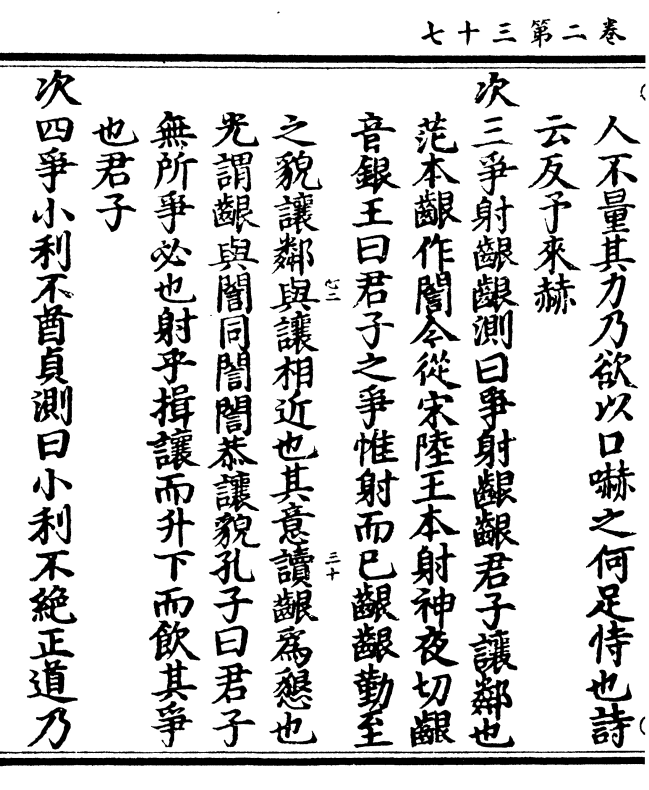 卷二第三十七
人不量其力乃欲以口嚇之何足恃也詩
云反予來赫
次三爭射齦齦測曰爭射齦齦君子讓鄰也
范本齦作誾今從宋陸王本射神夜切齦
音銀王曰君子之爭惟射而已齦齦勤至
心三
三十
之貌讓鄰與讓相近也其意讀齦爲懇也
光謂齦與誾同誾誾恭讓貌孔子曰君子
無所爭必也射乎揖讓而升下而飲其爭
也君子
次四爭小利不酋貞測曰小利不絶正道乃